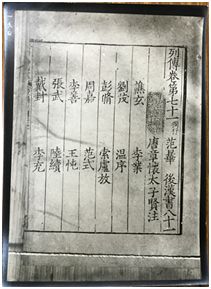 列傳卷第七十一 獨行 范曄 後漢書八十一
唐章懷太子賢注
譙玄 李業
劉茂 溫序
彭脩 索盧放
周嘉 范式
李善 王忳
張武 陸續
戴封 李充